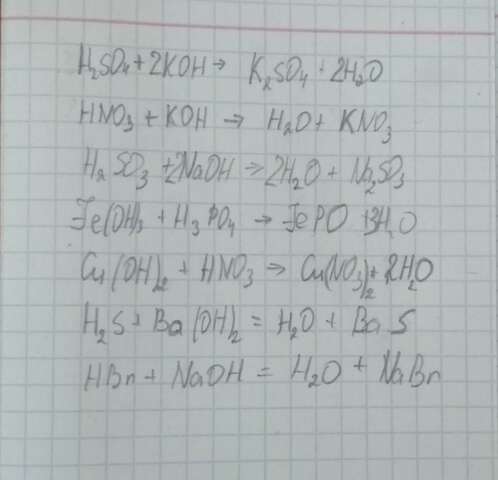 H₂SO₄ + 2KOH → K₂SO₄ + 2H₂O
HNO₃ + KOH → H₂O + KNO₃
H₂SO₃ + 2NaOH → 2H₂O + Na₂SO₃
Fe(OH)₃ + H₃PO₄ → FePO + 3H₂O
Cu(OH)₂ + HNO₃ → Cu(NO₃)₂ + 2H₂O
H₂S + Ba(OH)₂ = H₂O + BaS
HBr + NaOH = H₂O + NaBr